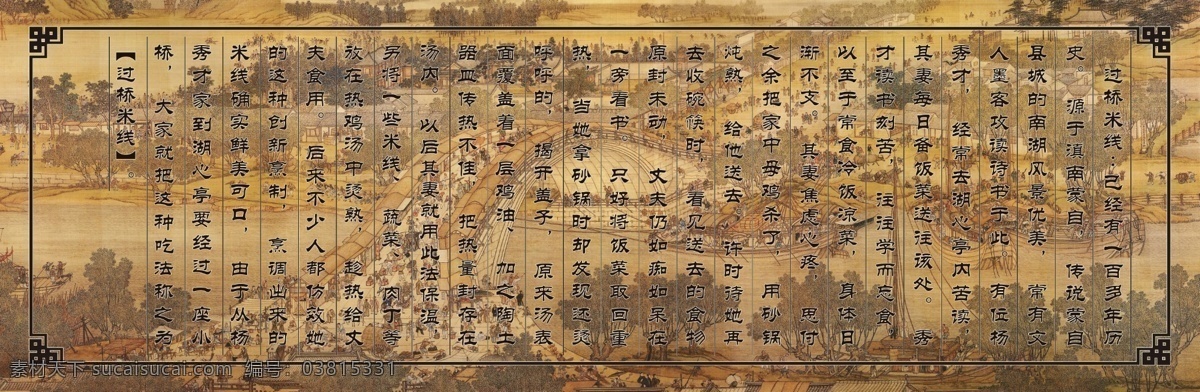 过桥米线：已经有一百多年历
史。 源于滇南蒙自， 传说蒙自
县城的南湖风景优美， 常有文
人墨客攻读诗书于此。有位杨
秀才， 经常去湖心亭内苦读，
其妻每日备饭菜送往该处。 秀
才读书刻苦， 往往学而忘食
以至于常食冷饭凉菜， 身体日
渐不支。 其妻焦虑心疼， 思付
之余把家中母鸡杀了， 用砂锅
炖熟， 给他送去。许时待她再
去收碗筷时， 看见送去的食物
原封未动， 丈夫仍如痴如呆在
一旁看书。 只好将饭菜取回重
热 当她拿砂锅时却发现还烫
呼呼的， 揭开盖子， 原来汤表
面覆盖着一层鸡油、 加之陶土
器皿传热不佳， 把热量封存在
汤内。 以后其妻就用此法保温，
另将一些米线、 蔬菜、 肉丁等
放在热鸡汤中烫熟， 趁热给丈
夫食用。 后来不少人都仿效她
的这种创新烹制 烹调出来的
米线确实鲜美可口， 由于从杨
秀才家到湖心亭要经过一座小
桥， 大家就把这种吃法称之为
【过桥米线】。
素材天下 sucaisucai.com 编号：03815331